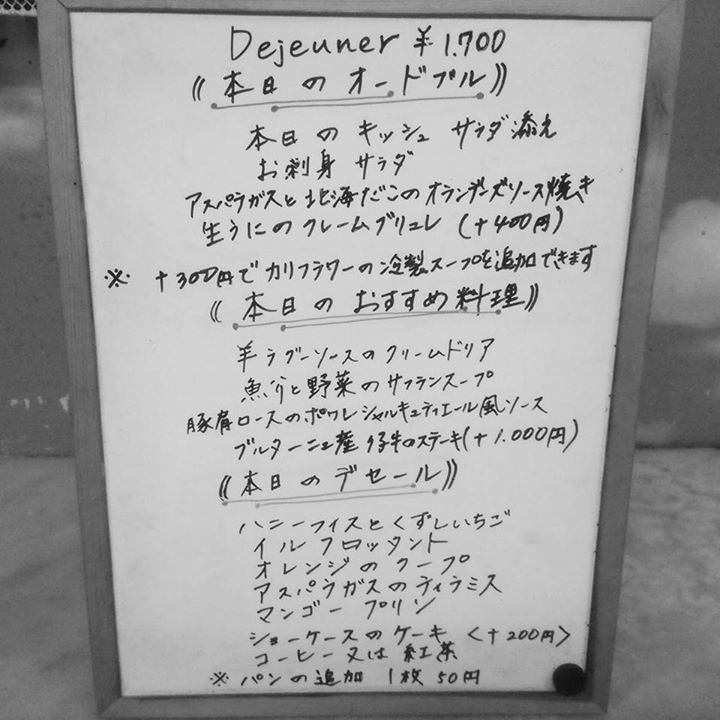 Dejeuner ¥1.700
《本日のオードブル》
本日のキッシュ サラダ添え
お刺身 サラダ
アスパラガスと北海だこのオランデーズソース焼き
生うにのクレームブリュレ (+400円)
※ +300円でカリフラワーの冷製スープを追加できます
《本日のおすすめ料理》
羊ラグーソースのクリームドリア
魚介と野菜のサフランスープ
豚肩ロースのポワレシャルキュティエール風ソース
ブルターニュ産仔牛のステーキ(+1.000円)
《本日のデセール》
ハニーフィスとくずしいちご
イルフロッタント
オレンジのクープ
アスパラガスのティラミス
マンゴープリン
ショーケースのケーキ <+200円>
コーヒー又は紅茶
※ パンの追加 1枚 50円